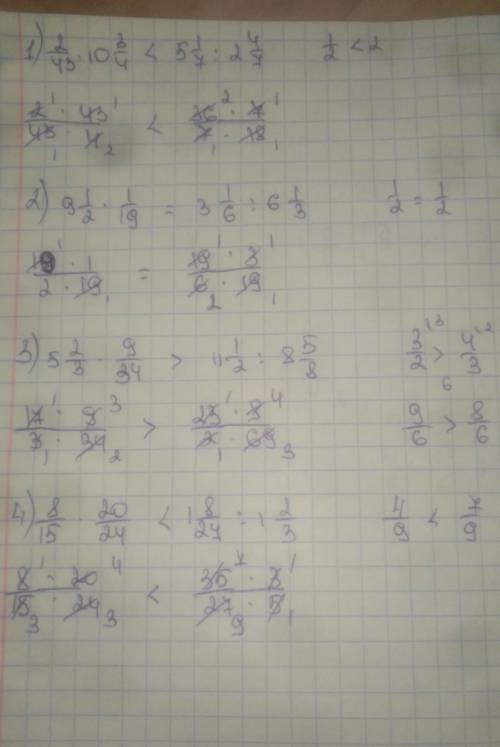 1) 2/43 · 10 3/4 < 5 1/7 : 2 4/7    1/2 < 2
2¹ · 43¹ / 43₁ · 4₂ < 36² · 7¹ / 7₁ · 18₁
2) 9 1/2 · 1/19 = 3 1/6 : 6 1/3    1/2 = 1/2
19¹ · 1 / 2 · 19₁ = 19¹ · 3¹ / 6₂ · 19₁
3) 5 2/3 · 9/34 > 11 1/2 : 8 5/8    3/2 ¹³ > 4/3 ¹² 6
17¹ · 9³ / 3₁ · 34₂ > 23¹ · 8⁴ / 2₁ · 69₃    9/6 > 8/6
4) 8/15 · 20/24 < 1 8/27 : 1 2/3    4/9 < 7/9
8¹ · 20⁴ / 15₃ · 24₃ < 35⁷ · 3¹ / 27₉ · 5₁